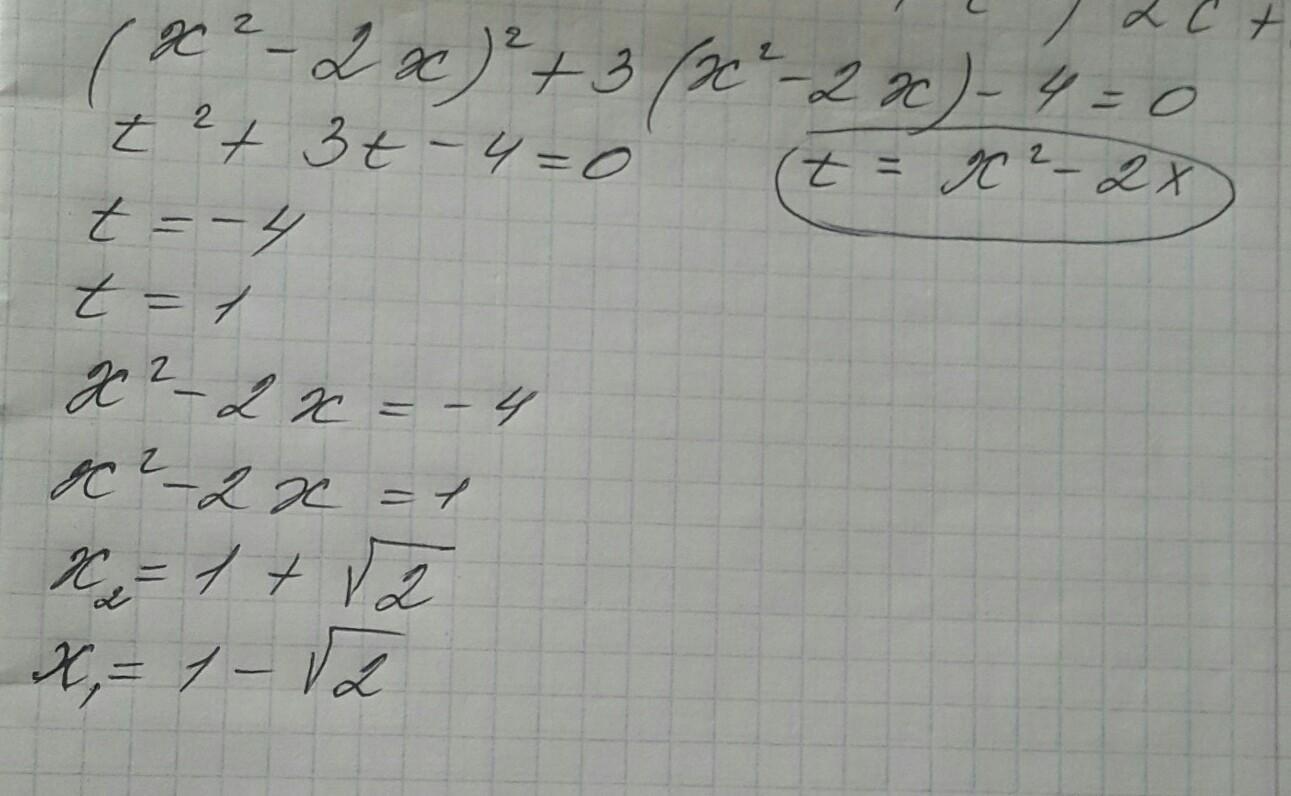 (x² - 2x)² + 3(x² - 2x) - 4 = 0
t² + 3t - 4 = 0
t = x² - 2x
t = -4
t = 1
x² - 2x = -4
x² - 2x = 1
x₂ = 1 + √2
x₁ = 1 - √2